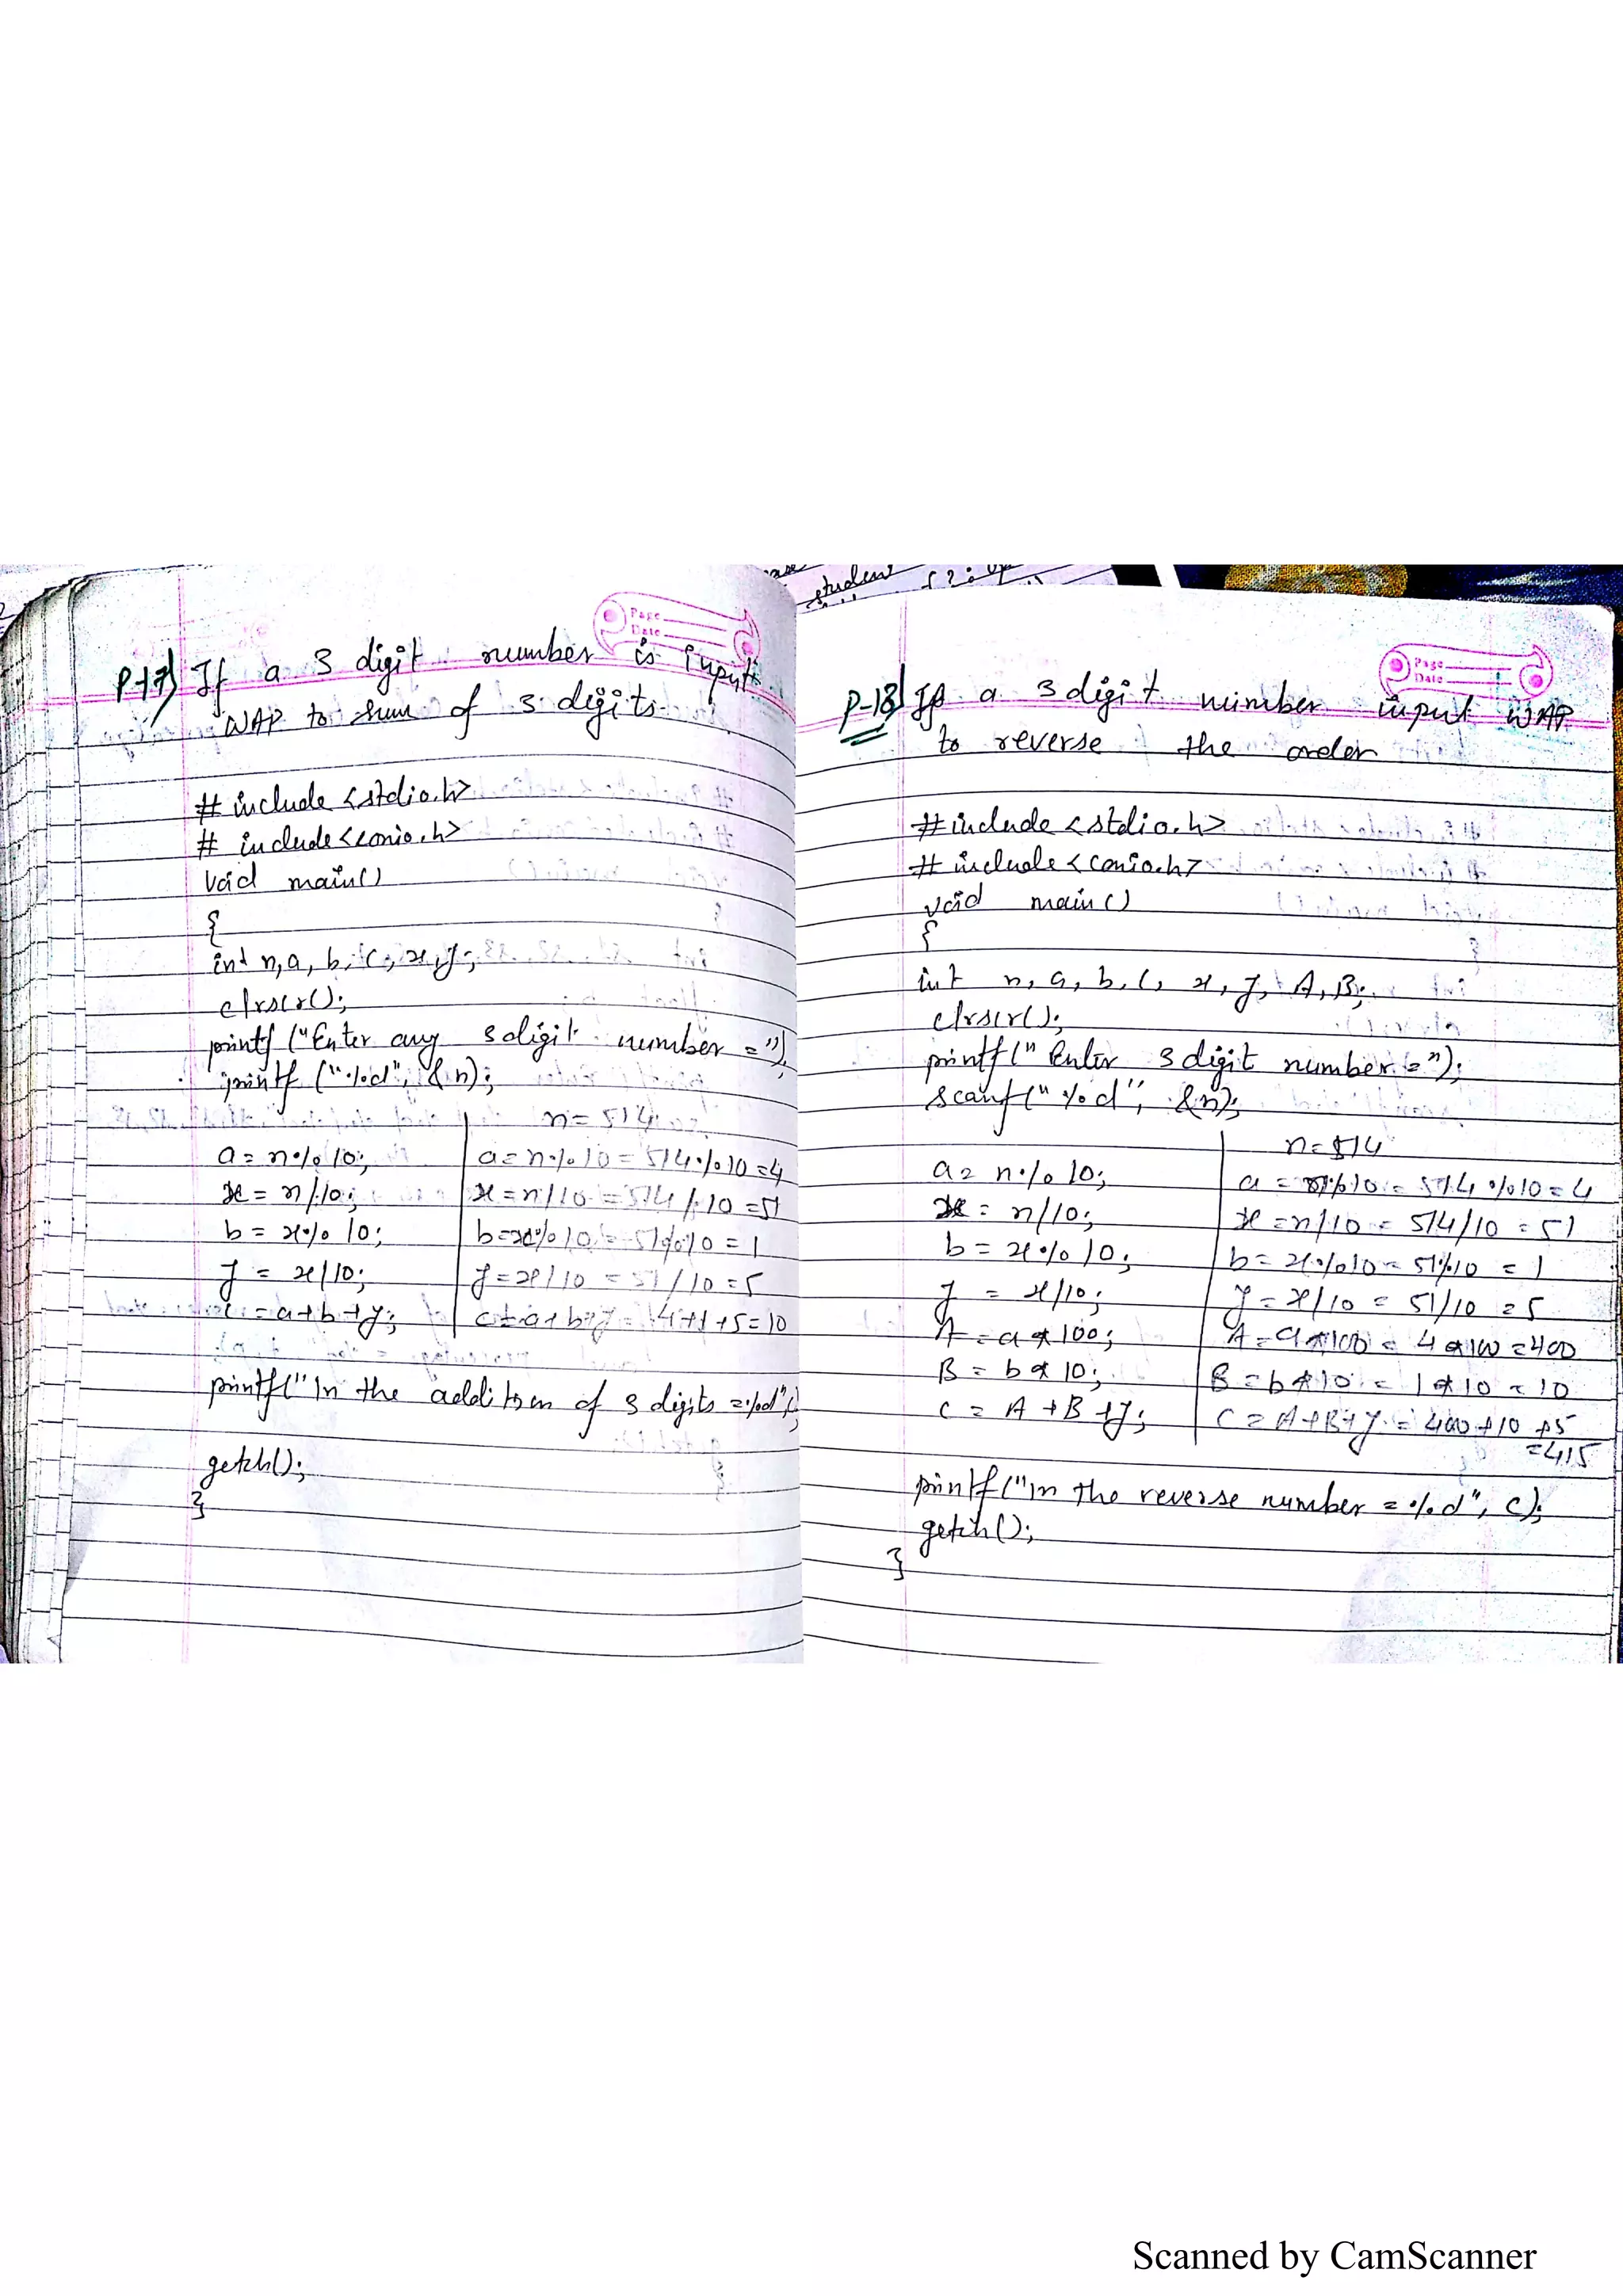 Page
Date
P-17) If a 3 digit number is input
WAP to sum of 3 digits.
# include <stdio.h>
# include <conio.h>
void main()
{
int n, a, b, c, x, y;
clrscr();
printf ("Enter any 3 digit number =");
printf ("%d", &n);
n = 514
a = n % 10; a = n % 10 = 514 % 10 = 4
x = n / 10; x = n / 10 = 514 / 10 = 51
b = x % 10; b = x % 10 = 51 % 10 = 1
y = x / 10; y = x / 10 = 51 / 10 = 5
c = a + b + y; c = a + b + y = 4 + 1 + 5 = 10
printf ("In the addition of 3 digits = %d",
getch();
}
student
Page
Date
P-18) If a 3 digit number input WAP
to reverse the order
# include <stdio.h>
# include <conio.h>
void main ()
{
int n, a, b, c, x, y, A, B;
clrscr();
printf (" Enter 3 digit number = ");
scanf (" %d", &n);
n = 514
a = n % 10; a = n % 10 = 514 % 10 = 4
x = n / 10; x = n / 10 = 514 / 10 = 51
b = x % 10; b = x % 10 = 51 % 10 = 1
y = x / 10; y = x / 10 = 51 / 10 = 5
A = a * 100; A = a * 100 = 4 * 100 = 400
B = b * 10; B = b * 10 = 1 * 10 = 10
c = A + B + y; c = A + B + y = 400 + 10 + 5
= 415
printf ("In the reverse number = %d", c);
getch ();
}
Scanned by CamScanner